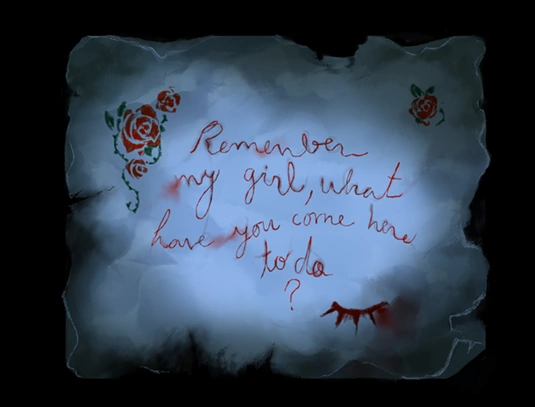 Remember
my girl, what
have you come here
to do
?